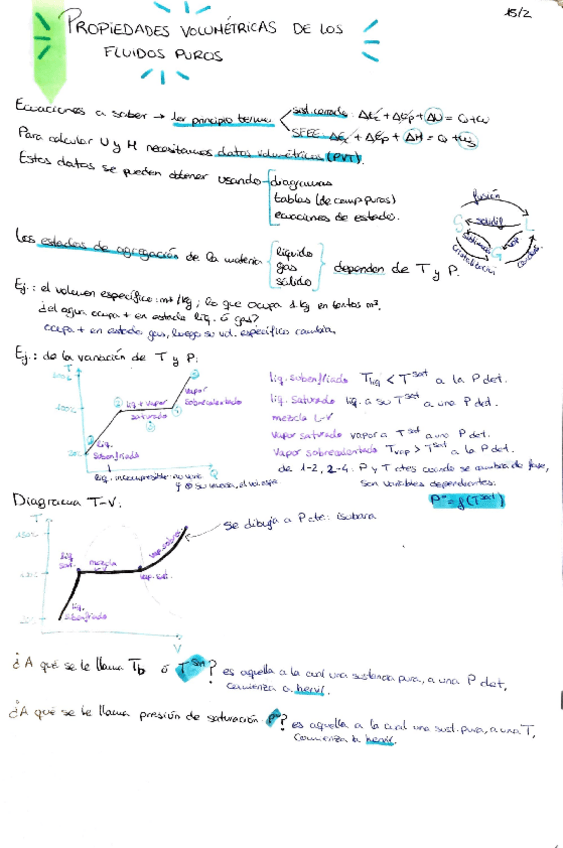 15/2
PROPIEDADES VOLUMÉTRICAS DE LOS
FLUIDOS PUROS
Ecuaciones a saber → 1er principio termo
sist. cerrado: ΔEc + ΔEp + ΔU = Q + W
SFEE: ΔEc + ΔEp + ΔH = Q + Ws
Para calcular U y H necesitamos datos volumétricos (PVT).
Estos datos se pueden obtener usando
diagramas
tablas (de comp. puros)
ecuaciones de estado.
fusión
S solidif. L
G
Los estados de agregación de la materia
líquido
gas
sólido
dependen de T y P.
Ej.: el volumen específico: m³/kg; lo que ocupa 1 kg en tantos m³.
¿el agua ocupa + en estado líq. ó gas?
ocupa + en estado gas, luego su vol. específico cambia.
Ej.: de la variación de T y P:
T
100ºC
líq + vapor
saturado
vapor
sobrecalentado
líq.
subenfriado
Q
líq. incompresible: no varía
líq. subenfriado Tliq < Tsat a la P det.
líq. saturado líq. a su Tsat a una P det.
mezcla L-V
vapor saturado vapor a Tsat a una P det.
vapor sobrecalentado Tvap > Tsat a la P det.
de 1-2, 2-4. P y T ctes cuando se cambia de fase,
son variables dependientes.
Pº = f(Tsat)
Diagrama T-V:
T
líq.
sat.
mezcla
vap. sat.
vap. sobrec.
líq.
subenfriado
V
se dibuja a P cte: isobara
¿A qué se le llama Tb ó Tsat? es aquella a la cual una sustancia pura, a una P det,
comienza a hervir.
¿A qué se le llama presión de saturación Pº? es aquella a la cual una sust. pura, a una T,
comienza a hervir.